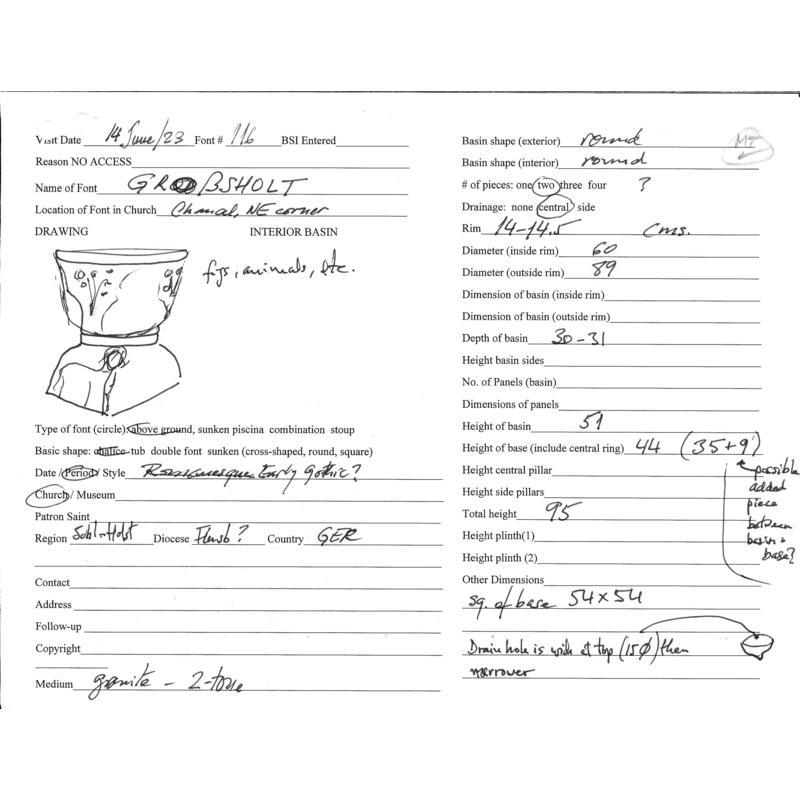 Visit Date 14 June/23 Font # 116 BSI Entered
Reason NO ACCESS
Name of Font GROßSHOLT
Location of Font in Church Chancel, NE corner
DRAWING INTERIOR BASIN
figs, animals, etc.
Type of font (circle): above ground, sunken piscina combination stoup
Basic shape: chalice tub double font sunken (cross-shaped, round, square)
Date / Period / Style Romanesque Early Gothic?
Church / Museum
Patron Saint
Region Schl-Holst Diocese Flensb? Country GER
Contact
Address
Follow-up
Copyright
Medium granite - 2-tone
Basin shape (exterior) round
Basin shape (interior) round
MT
# of pieces: one two three four ?
Drainage: none central side
Rim 14-14.5 cms.
Diameter (inside rim) 60
Diameter (outside rim) 89
Dimension of basin (inside rim)
Dimension of basin (outside rim)
Depth of basin 30-31
Height basin sides
No. of Panels (basin)
Dimensions of panels
Height of basin 51
Height of base (include central ring) 44 (35+9)
Height central pillar
Height side pillars
Total height 95
Height plinth(1)
Height plinth (2)
possible
added
piece
between
basin +
base?
Other Dimensions
sq. of base 54x54
Drain hole is wide at top (15Ø) then
narrower